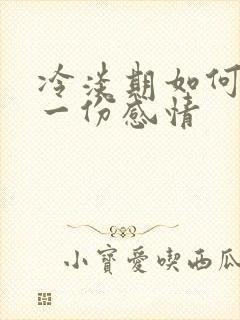 冷淡期如何
一份感情
小寶愛喫西瓜